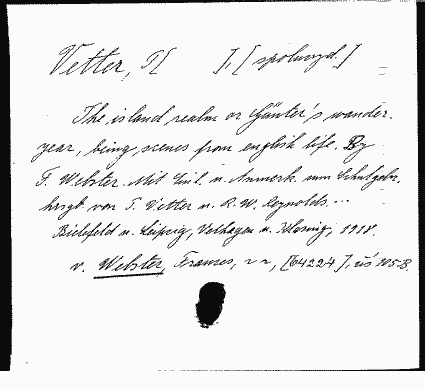 Vetter, T[ ], [spoluvyd.]
The island realm or Günter's wander-
year, being scenes from english life. By
F. Webster. Mit Einl. u. Anmerk. zum Schulgebr.
hrsgb. von T. Vetter u. R. W. Reynolds...
Bielefeld u. Leipzig, Velhagen u. Klasing, 1918.
v. Webster, Frances,